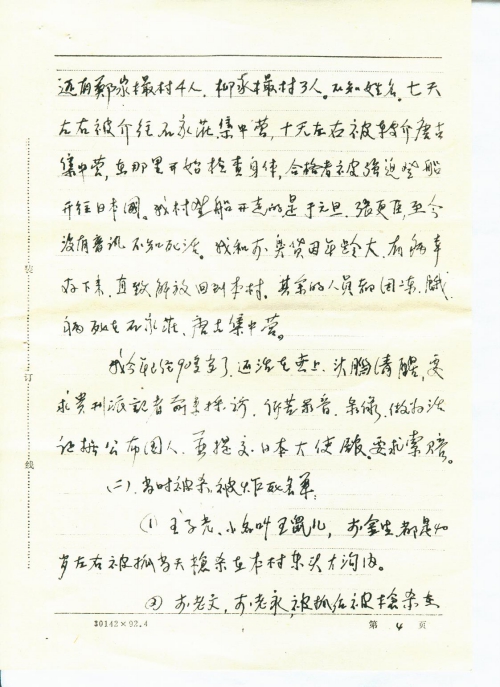 还有郑家撮村4人，柳家撮村3人。不知姓名。七天
左右被介往石家莊集中营，十天左右被转介唐古
集中营，在那里开始检查身体，合格者被强迫登船
开往日本國。我村登船开走的是于元旦，張更臣，至今
没有音讯不知死活。我和 因年龄大，有病幸
存下来，直致解放回到本村。其余的人员都因冻、餓
病死在石家莊、唐古集中营。
我今年已活90多岁了，还活在世上，头脑清醒，要
求贵刊派記者前来採访，听苦 录音、录像，做为活
证据公布国人，並提交日本大使馆。要求索賠。
(二)、当时被杀、被炸死名单：
(1) 王子老、小名叫王鼠儿， 金生都是40
岁左右被抓当天槍杀在本村东头大沟内。
② 老文， 老永，被抓后被槍杀在
装
订
线
30142×92.4
第 4 页